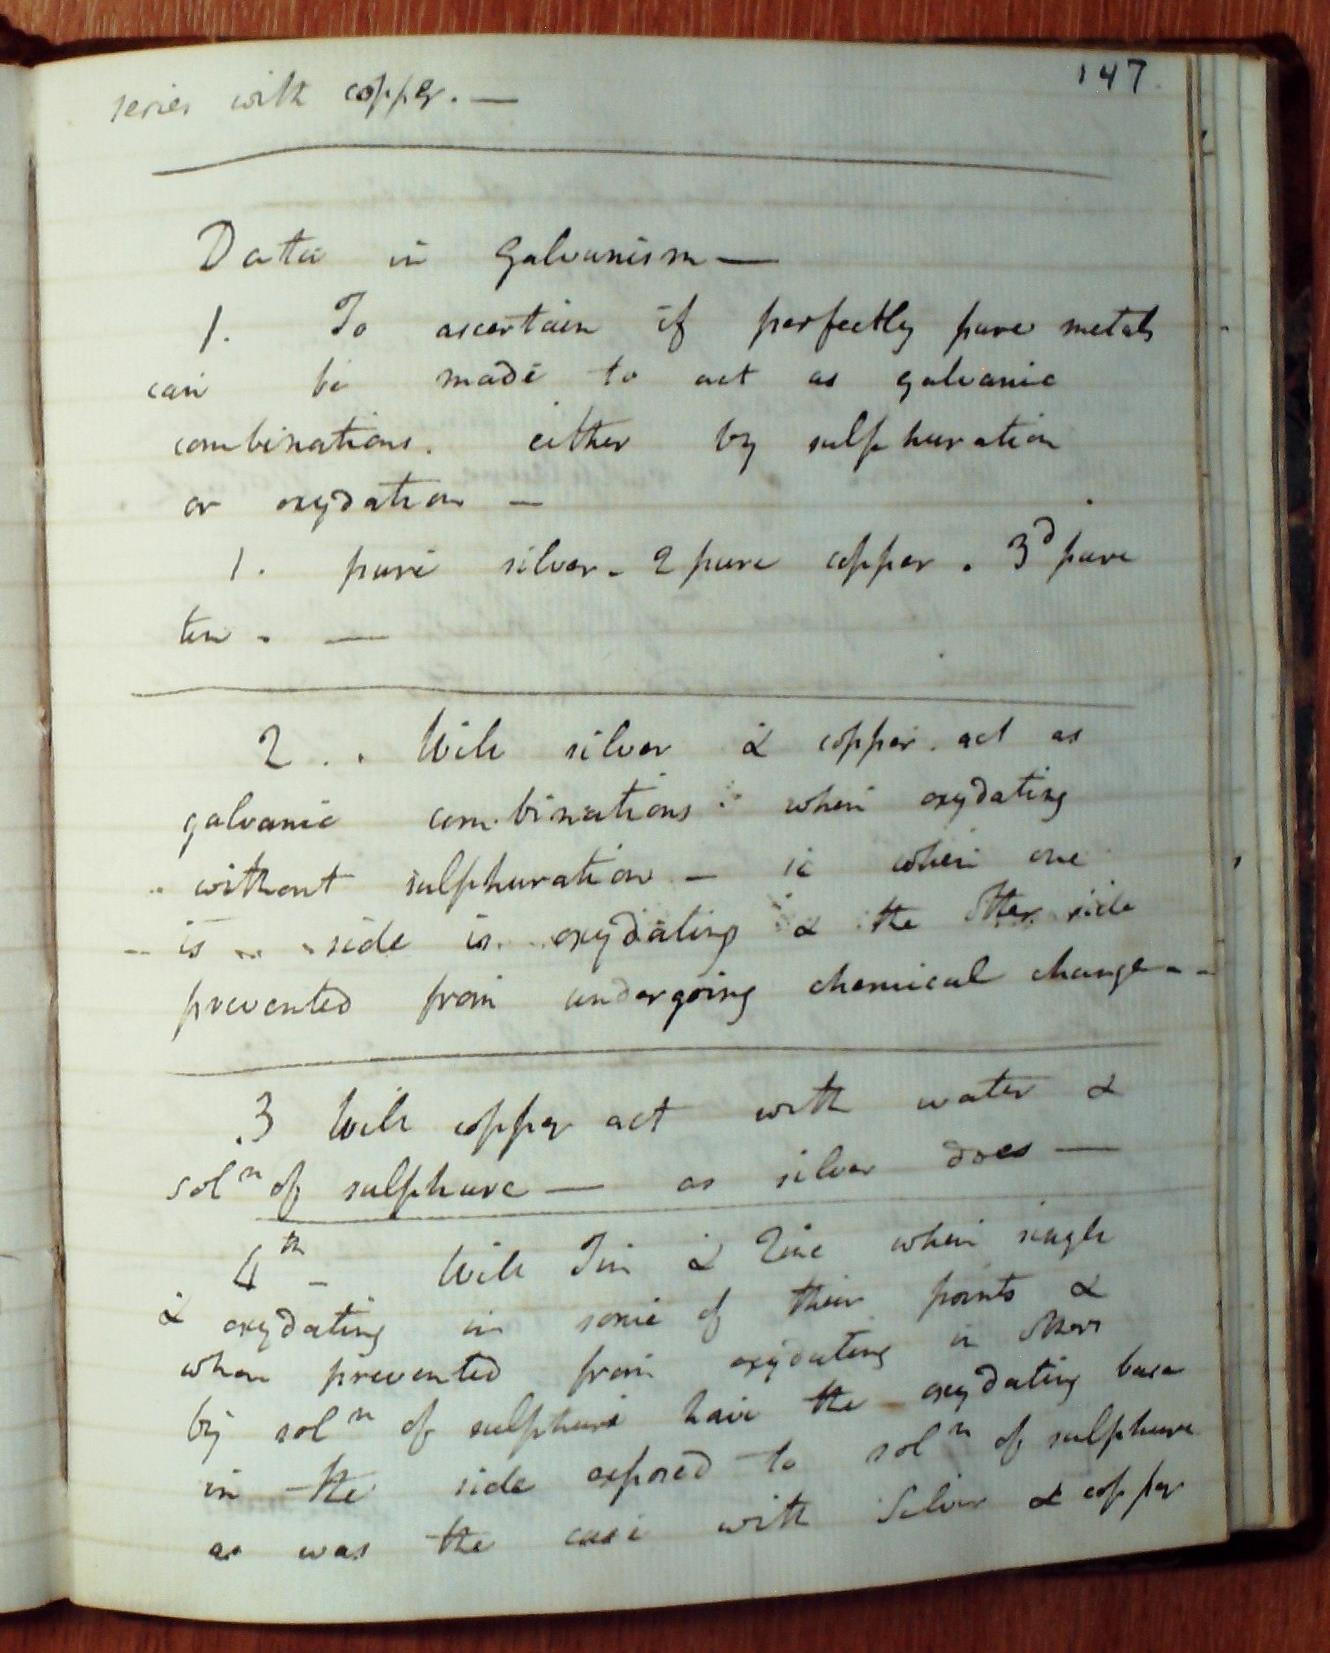 147
series with copper. —
Data in Galvanism —
1. To ascertain if perfectly pure metals
can be made to act as galvanic
combinations. either by sulphuration
or oxydation —
1. pure silver - 2 pure copper . 3d pure
tin . —
2 . . Will silver & copper act as
galvanic combinations when oxydating
without sulphuration - ie when one
is side is oxydating & the other side
prevented from undergoing chemical change - -
.3 Will copper act with water &
soln of sulphure — as silver does —
4th - Will Tin & Zinc when single
& oxydating in some of their points &
when prevented from oxydating in others
by soln of sulphure have the oxydating base
in the side exposed to soln of sulphure
as was the case with Silver & copper